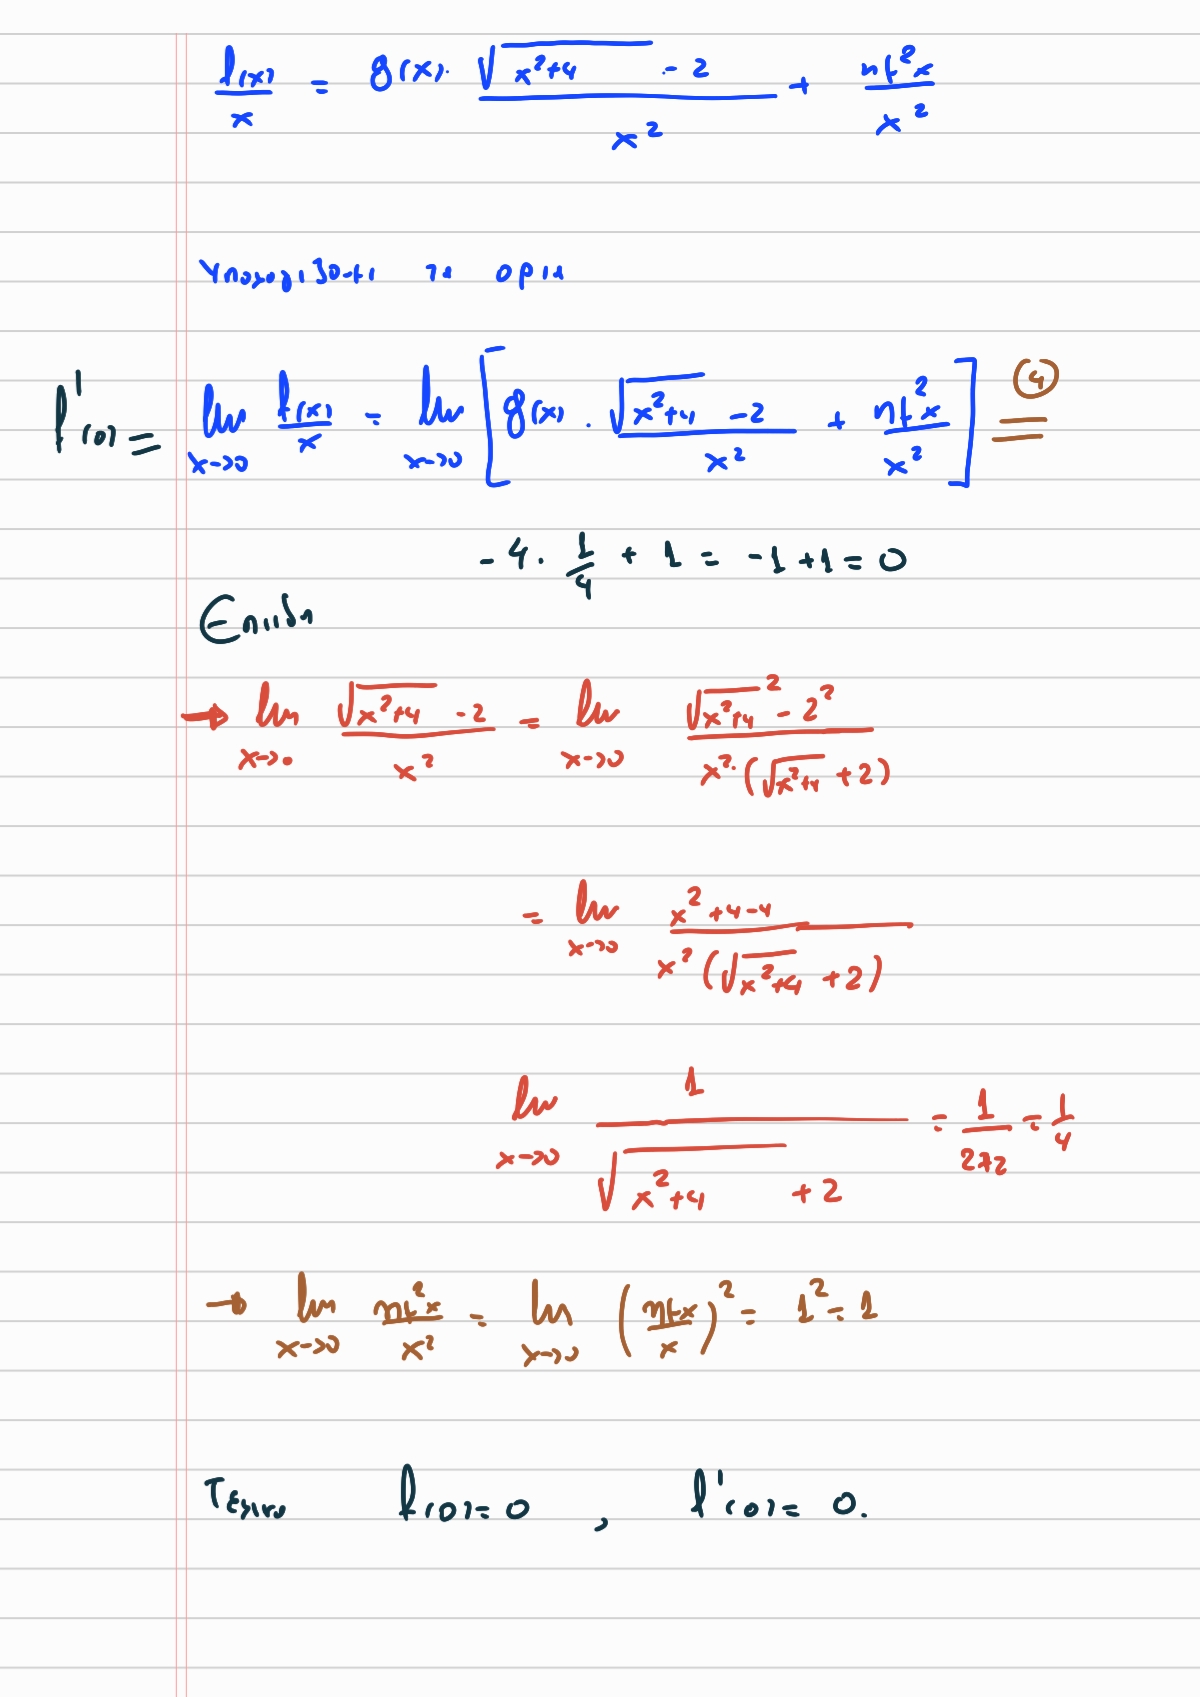 f(x)/x = g(x) · (√(x²+4) - 2)/x² + ημ²x/x²
Υπολογίζουμε τα όρια
f'(0) = lim x→0 f(x)/x = lim x→0 [g(x) · (√(x²+4) - 2)/x² + ημ²x/x²] =(4)
-4 · 1/4 + 1 = -1 + 1 = 0
Επειδή
→ lim x→0 (√(x²+4) - 2)/x² = lim x→0 (√(x²+4)² - 2²)/(x² · (√(x²+4) + 2))
= lim x→0 (x²+4-4)/(x² (√(x²+4) + 2))
lim x→0 1/(√(x²+4) + 2) = 1/(2+2) = 1/4
→ lim x→0 ημ²x/x² = lim x→0 (ημx/x)² = 1² = 1
Τελικα f(0) = 0 , f'(0) = 0.